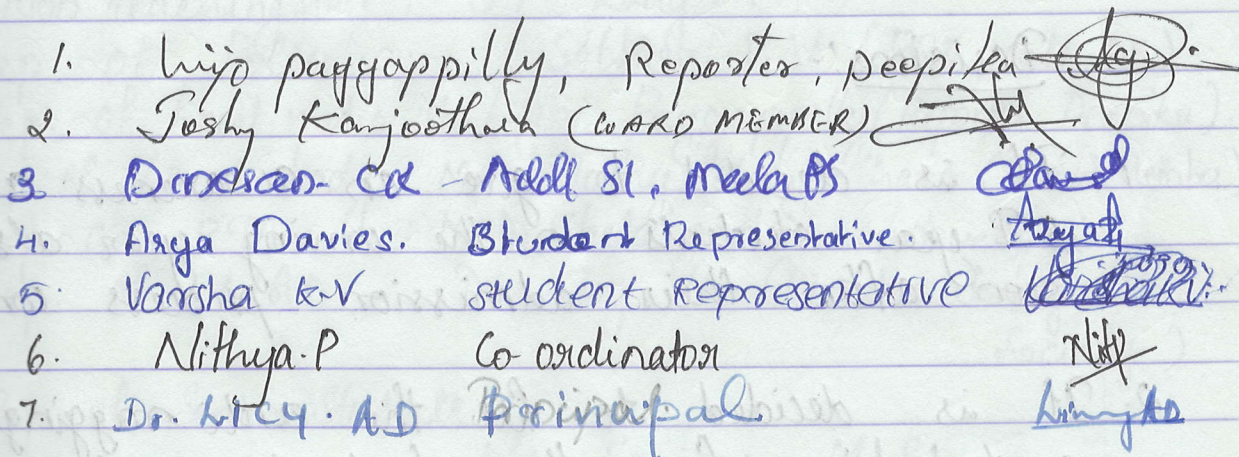 1. Lijo payyappilly, Reporter, Deepika
2. Joshy Kanjoothara (WARD MEMBER)
3 Danesan. CK - Addl SI, Meela PS
4. Arya Davies. Student Representative. Arya
5. Varsha K.V Student Representative
6. Nithya.P Co-ordinator Nithy
7. Dr. LICY. AD Principal.